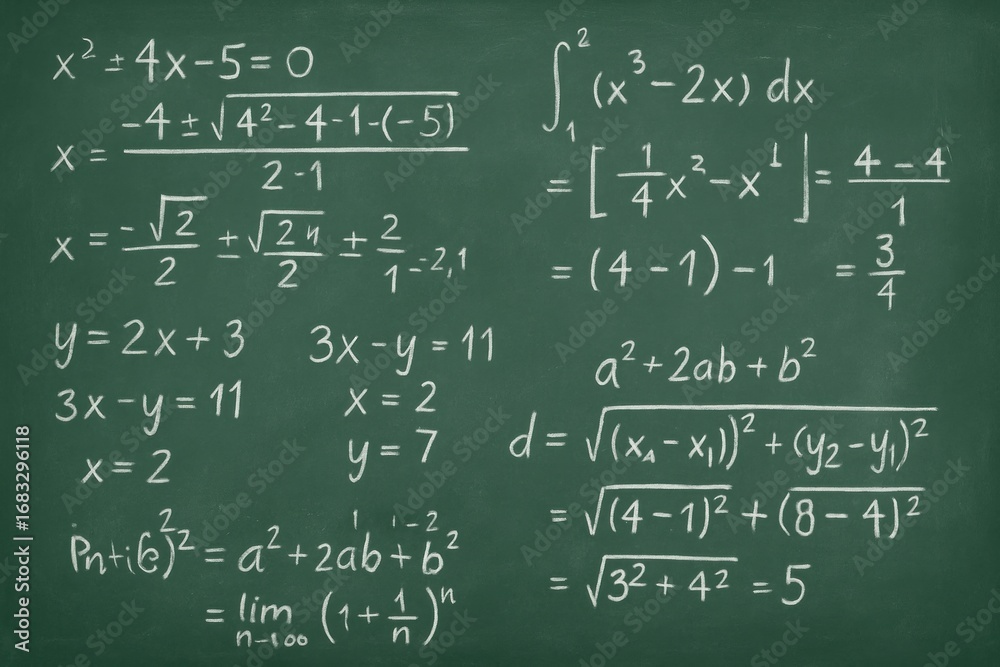 x² ± 4x − 5 = 0
x = (−4 ± √(4² − 4 - 1 - (−5))) / (2 - 1)
x = −√2 / 2 ± √2и / 2 ± 2 / 1 −2,1
y = 2x + 3
3x − y = 11
x = 2
3x − y = 11
x = 2
y = 7
= a² + 2ab + b²
1 1−2
= lim n→∞ (1 + 1/n)ⁿ
∫₁² (x³ − 2x) dx
= [1/4 x² − x¹] = (4 − 4) / 1
= (4 − 1) − 1 = 3/4
a² + 2ab + b²
d = √((x₄ − x₁))² + (y₂ − y₁)²
= √(4 − 1)² + (8 − 4)²
= √3² + 4² = 5
Adobe Stock | #1683296118
Adobe Stock